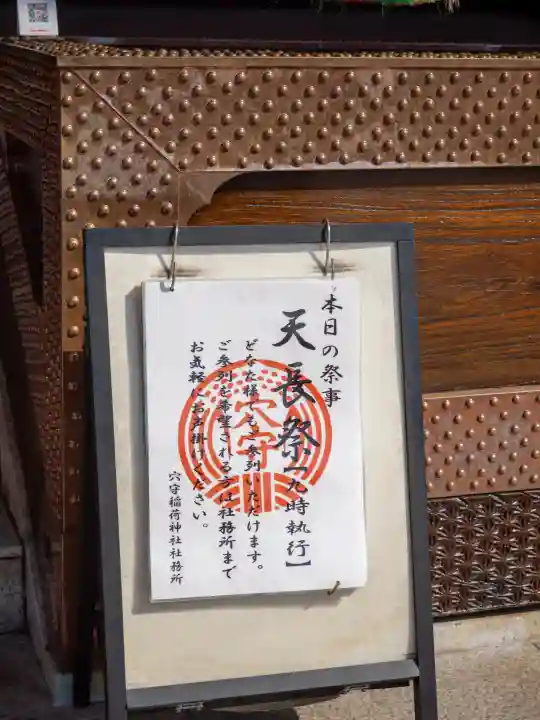 本日の祭事
天長祭【九時執行】
どなた様でもご参列いただけます。
ご参列を希望される方は社務所まで
お気軽にお声掛けください。
穴守稲荷神社社務所
穴守